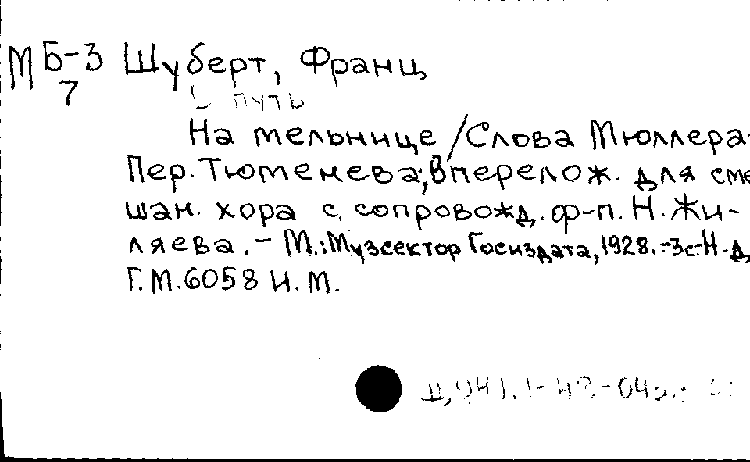 МБ-3 Шуберт, Франц
7
В путь
На мельнице /Слова Мюллера-
Пер. Тюменева; Вперелож. для сме
шан. хора с сопровожд. ф-п. Н. Жи-
ляева. – М.: Музсектор Госиздата, 1928. – 3с – Н. д,
Г. М. 6058 Н. М.